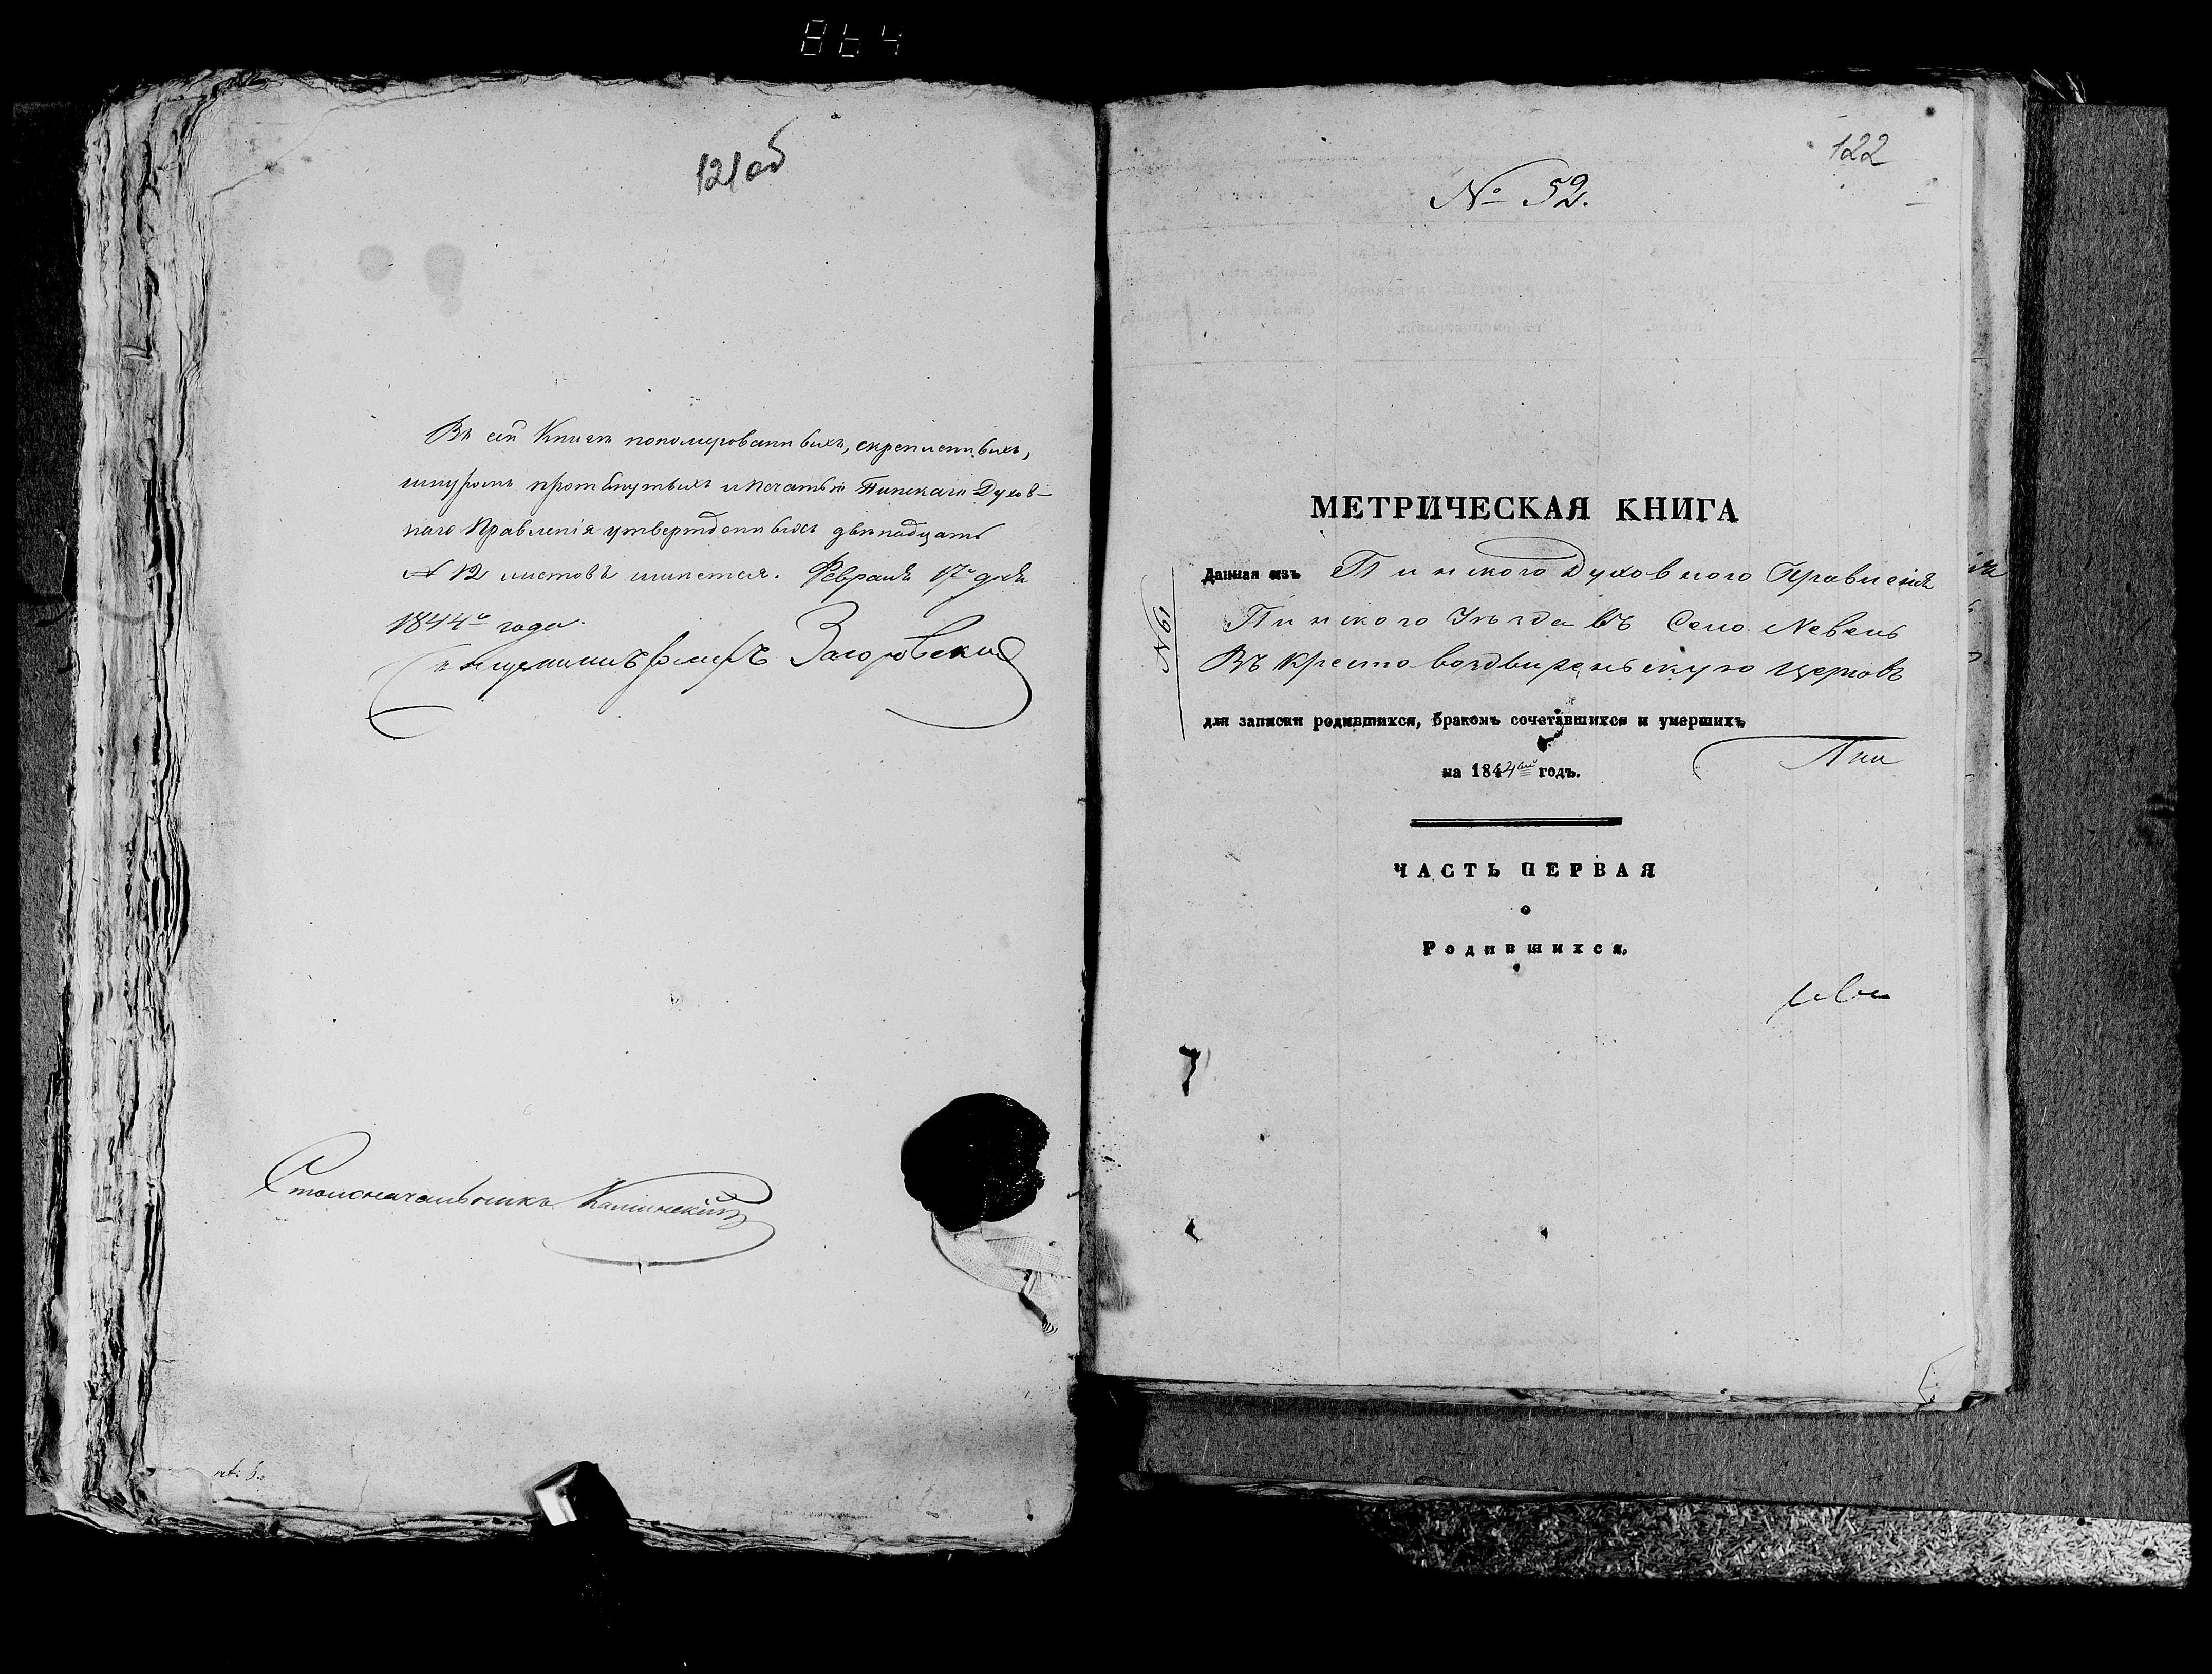 864
121об
Въ сей Книге пономерованныхъ, скрепленныхъ,
шнуромъ протянутыхъ и печатью Пинскаго Духов-
наго Правленія утвержденныхъ двенадцать
№ 12 листовъ имеется. Февраля 17 дня
1844го года.
Священникъ Загоровский
Столоначальникъ Калинский
122
№ 52.
МЕТРИЧЕСКАЯ КНИГА
Данная изъ Пинского Духовного Правления
Пинского Уѣзда въ Село Невель
Въ Крестовоздвиженьскую Церковь
№ 61
для записки родившихся, бракомъ сочетавшихся и умершихъ
на 1844 годъ.
ЧАСТЬ ПЕРВАЯ
о
Родившихся.